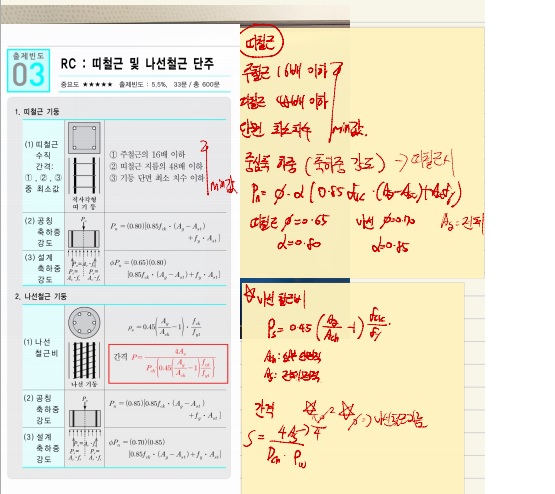 출제빈도
03
RC : 띠철근 및 나선철근 단주
중요도 ★★★★★ 출제빈도 : 5.5%, 33문 / 총 600문
1. 띠철근 기둥
(1) 띠철근
수직
간격:
①, ②, ③
중 최소값
직사각형
띠 기둥
① 주철근의 16배 이하
② 띠철근 지름의 48배 이하
③ 기둥 단면 최소 치수 이하
min값
(2) 공칭
축하중
강도
Pn = (0.80)[0.85fck · (Ag − Ast)
+ fy · Ast]
(3) 설계
축하중
강도
φPn = (0.65)(0.80)
[0.85fck · (Ag − Ast) + fy · Ast]
2. 나선철근 기둥
(1) 나선
철근비
나선 기둥
ρs = 0.45(Ag/Ach − 1) · fck/fyt
간격 P = 4As / Dch{0.45(Ag/Ach − 1)fck/fyt}
(2) 공칭
축하중
강도
Pn = (0.85)[0.85fck · (Ag − Ast)
+ fy · Ast]
(3) 설계
축하중
강도
φPn = (0.70)(0.85)
[0.85fck · (Ag − Ast) + fy · Ast]
띠철근
주철근 16배 이하
띠철근 48배 이하
단면 최소치수
min값.
중심축 하중 (축하중 강도) → 띠철근시
Pn = φ·α(0.85 fck · (Ag−Ast)+Astfy)
띠철근 φ=0.65 나선 φ=0.70
α=0.80 α=0.85
☆ 나선철근비
ρs = 0.45 (Ag/Ach − 1) fck/fy
간격
S = 4As / Dch · ρs